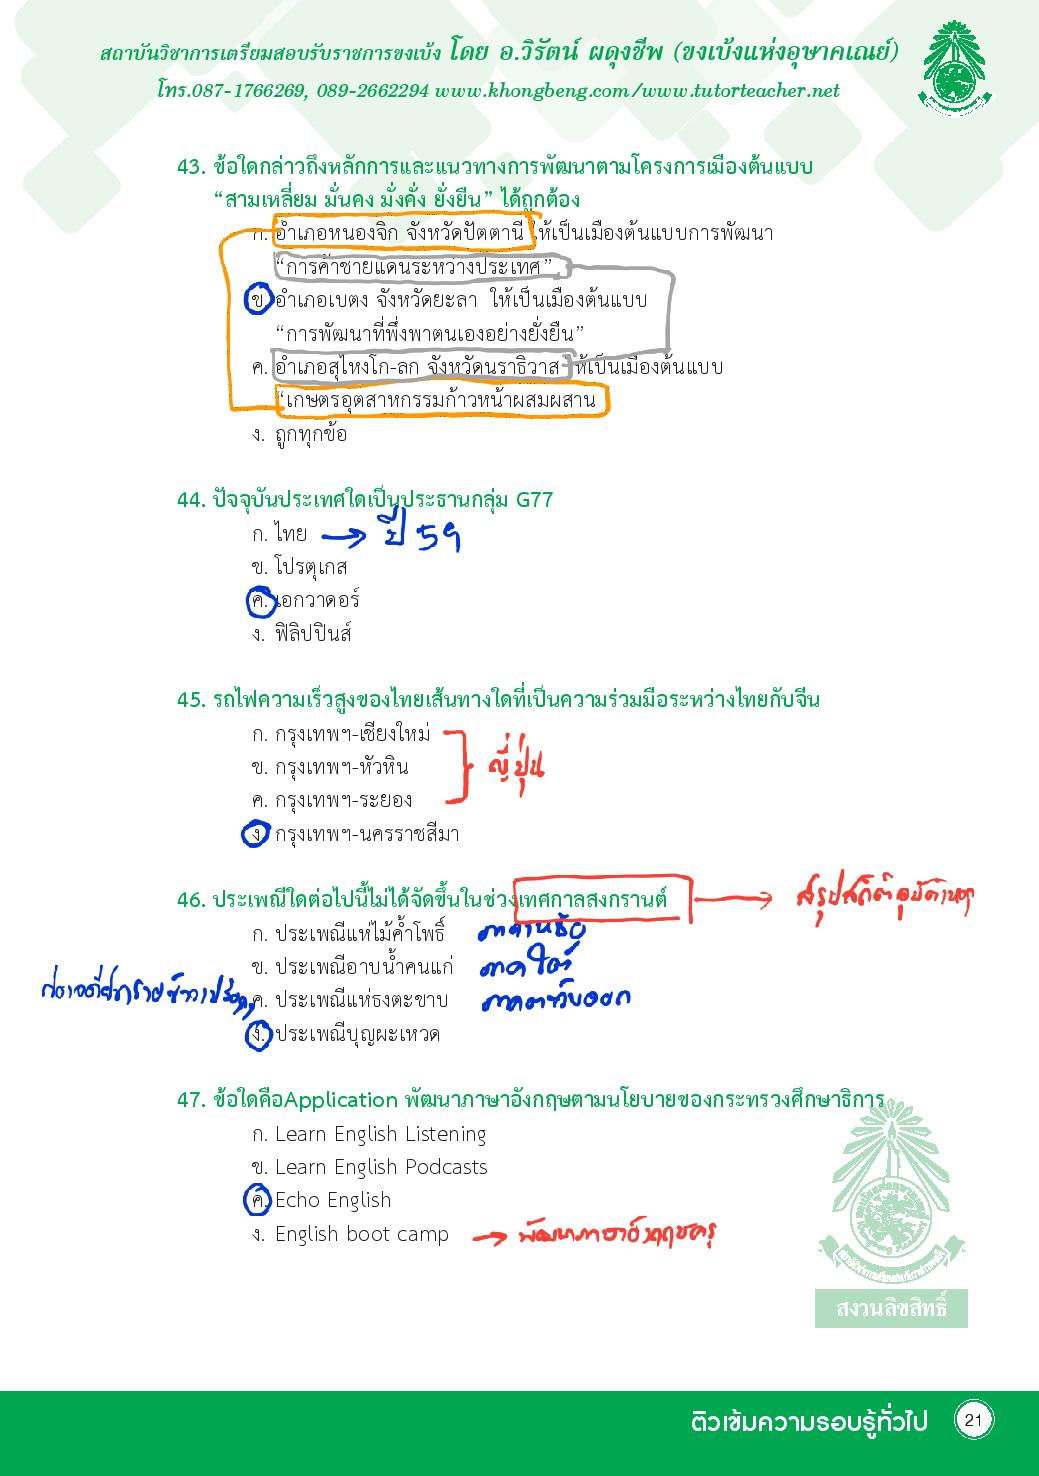 สถาบันวิชาการเตรียมสอบรับราชการขงเบ้ง โดย อ.วิรัตน์ ผดุงชีพ (ขงเบ้งแห่งอุษาคเณย์)
โทร.087-1766269, 089-2662294 www.khongbeng.com/www.tutorteacher.net
43. ข้อใดกล่าวถึงหลักการและแนวทางการพัฒนาตามโครงการเมืองต้นแบบ
“สามเหลี่ยม มั่นคง มั่งคั่ง ยั่งยืน” ได้ถูกต้อง
ก. อำเภอหนองจิก จังหวัดปัตตานี ให้เป็นเมืองต้นแบบการพัฒนา
“การค้าชายแดนระหว่างประเทศ”
ข. อำเภอเบตง จังหวัดยะลา ให้เป็นเมืองต้นแบบ
“การพัฒนาที่พึ่งพาตนเองอย่างยั่งยืน”
ค. อำเภอสุไหงโก-ลก จังหวัดนราธิวาส ให้เป็นเมืองต้นแบบ
“เกษตรอุตสาหกรรมก้าวหน้าผสมผสาน
ง. ถูกทุกข้อ
44. ปัจจุบันประเทศใดเป็นประธานกลุ่ม G77
ก. ไทย → ปี 59
ข. โปรตุเกส
ค. เอกวาดอร์
ง. ฟิลิปปินส์
45. รถไฟความเร็วสูงของไทยเส้นทางใดที่เป็นความร่วมมือระหว่างไทยกับจีน
ก. กรุงเทพฯ-เชียงใหม่
ข. กรุงเทพฯ-หัวหิน ญี่ปุ่น
ค. กรุงเทพฯ-ระยอง
ง. กรุงเทพฯ-นครราชสีมา
46. ประเพณีใดต่อไปนี้ไม่ได้จัดขึ้นในช่วงเทศกาลสงกรานต์ → สรุปสถิติอุบัติเหตุ
ก. ประเพณีแห่ไม้ค้ำโพธิ์ ภาคเหนือ
ข. ประเพณีอาบน้ำคนแก่ ภาคใต้
ค. ประเพณีแห่ธงตะขาบ ภาคตะวันออก
ง. ประเพณีบุญผะเหวด
47. ข้อใดคือApplication พัฒนาภาษาอังกฤษตามนโยบายของกระทรวงศึกษาธิการ
ก. Learn English Listening
ข. Learn English Podcasts
ค. Echo English
ง. English boot camp → พัฒนาภาษาอังกฤษครู
สงวนลิขสิทธิ์
ติวเข้มความรอบรู้ทั่วไป 21